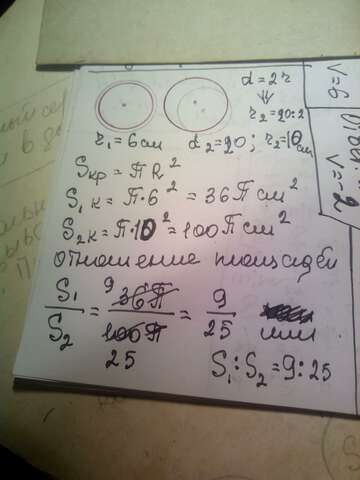 d = 2r
⇓
r₂ = 20:2
r₁ = 6 см d₂ = 20; r₂ = 10 см
Sкр = πR²
S₁к = π·6² = 36π см²
S₂к = π·10² = 100π см²
отношение площадей
S₁/S₂ = 9 36π/100π 25 = 9/25 или
S₁:S₂ = 9:25
v=6
v=-2